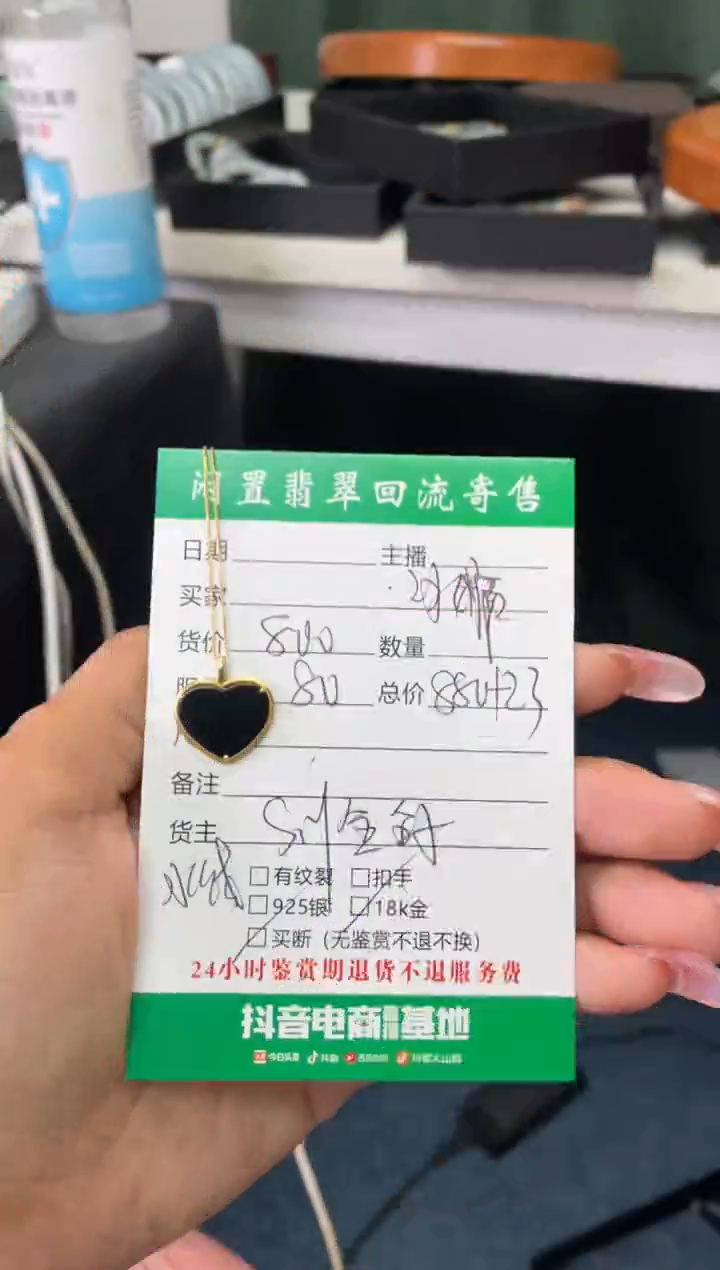 闲置翡翠回流寄售
日期 主播
买家
货价 800 数量
服 80 总价 880+23
备注
货主
□有纹裂 □扣手
□925银 □18k金
□买断(无鉴赏不退不换)
24小时鉴赏期退货不退服务费
抖音电商 基地
今日头条 抖音 抖音火山版